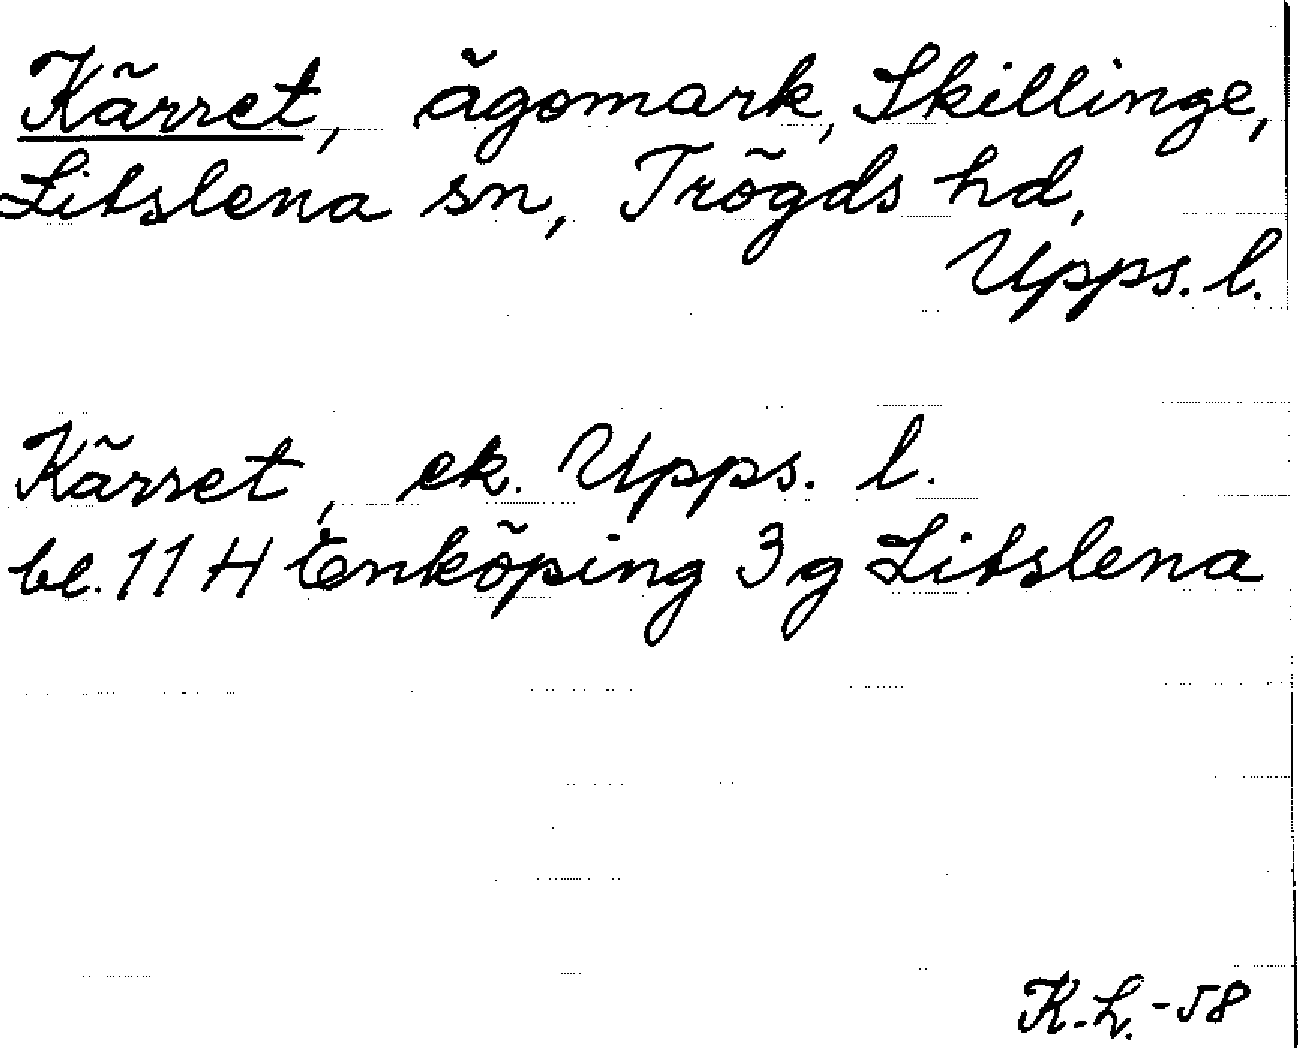 Kärret, ägomark, Skillinge,
Litslena sn, Trögds hd,
Upps. l.
Kärret, ek. Upps. l.
bl. 11 H Enköping 3 g Litslena
K.L. -58